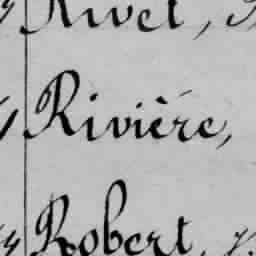 Rivet,
Rivière,
Robert,